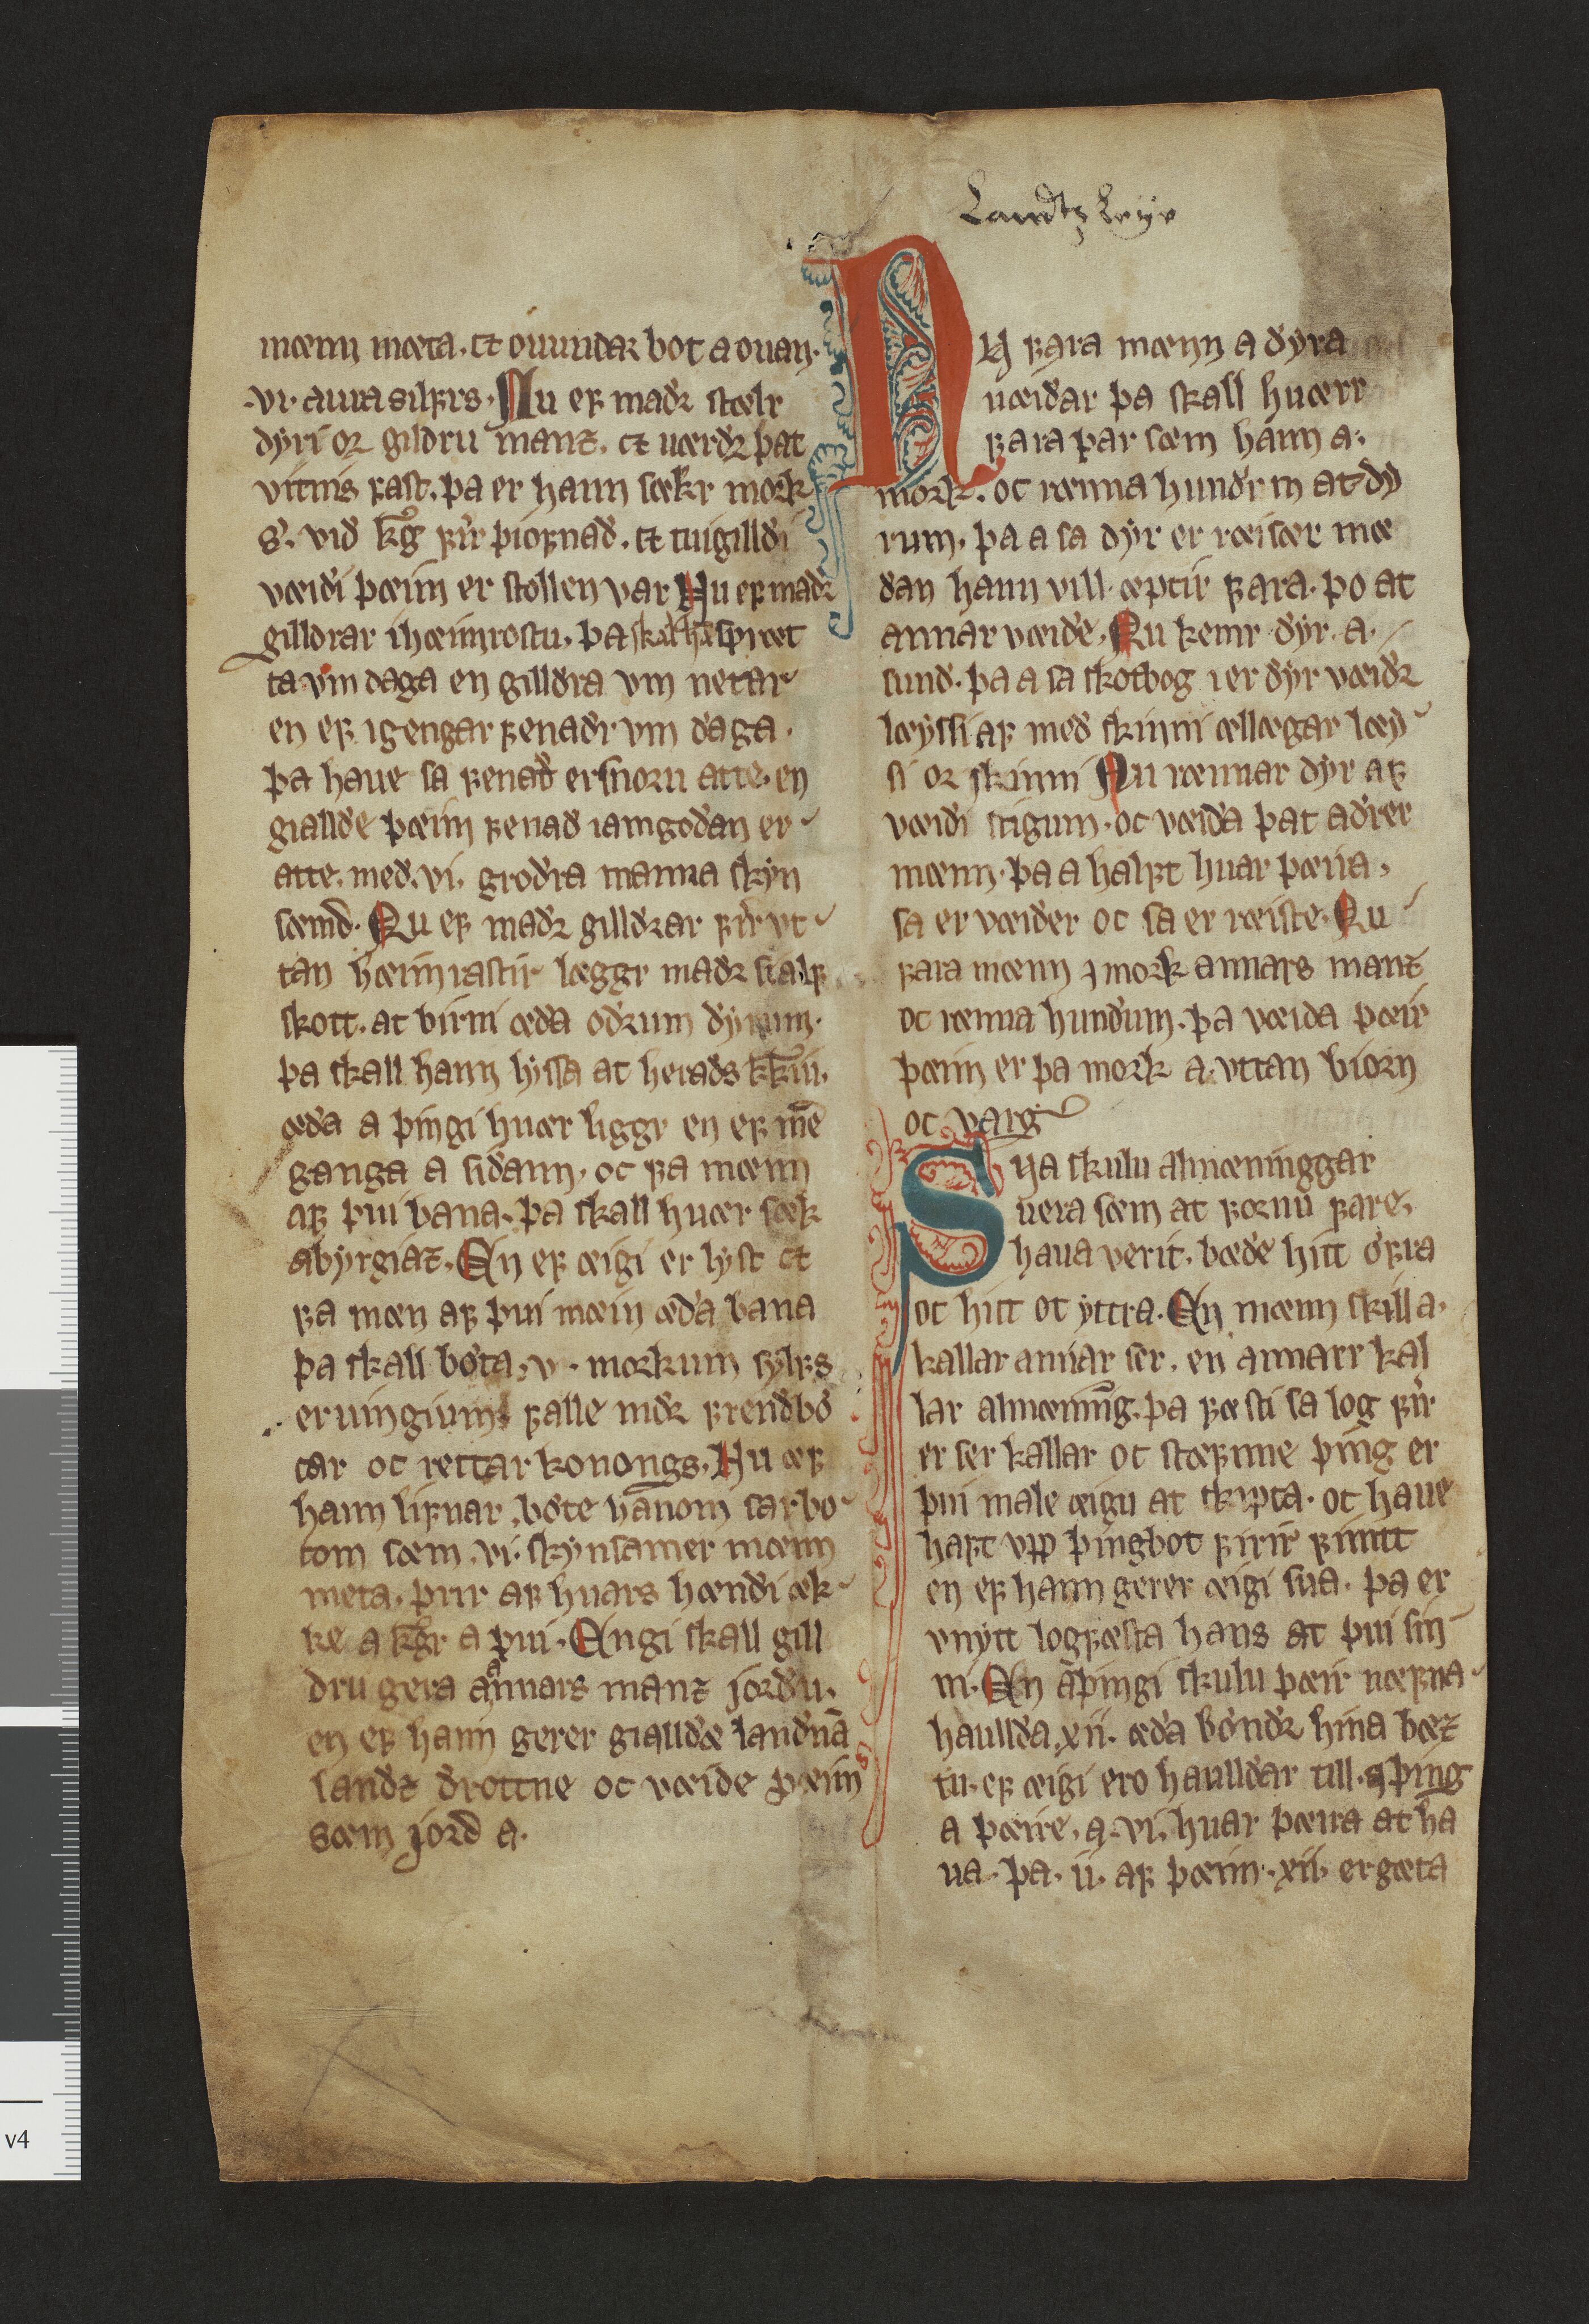 Landtz Leye
mœnn mœta. et ouundar bot a ouan.
.vi. aura silfrs. Nu ef maðr stœlr
dyri or gildru manz. et uærðr þat
vitnis fast. þa er hann sœkr mork
s. við kg firir þiofnað. et tuigilldi
vœiði þœim er stollen var Nu ef maðr
gilldrar i hœimrostu. þa skal hã sprœt
ta vm daga en gilldra vm netar
en ef i gengar fenaðr vm daga.
þa haue sa fenað er snoru atte. en
giallde þœim fenað iamgoðan er
atte. með. vi. groðra manna skyn
sœmd. Nu ef maðr gilldrar firir vt
tan hœimrastir lœggr maðr sialf
skott. at birni œða oðrum dyrum.
þa skall hann lyssa at heraðs kkiu.
œða a þingi huær liggr en ef mē
ganga a siðann. oc fa mœnn
af þui bana. þa skall huær sœk
abyrgiaz. En ef œigi er lyst et
fa mœn af þui mœin œða bana
þa skall bota. v. morkum sylfs
eruingium falle niðr frendbo
tar oc rettar konongs. Nu œf
hann lifnar. bote hānom sarbo
tom sœm. vi. skynsamer mœnn
meta. þrir af huars hœndi œk
ke a kgr a þui. Engi skall gill
dru gera a annars manz jorðu.
en ef hann gerer gialldœ landnā
landz drottne oc vœide þœim
sœm jord a.
Nu fara mœnn a dyra
uœiðar þa skall huœrr
fara þar sœm hann a
mork. oc rœnna hundm at dy
rum. þa a sa dyr er rœiser mœ
ðan hann vill œptir fara. þo at
annar vœiðe. Nu kemr dyr a
sund. þa a sa skotbog i er dyr vœiðr
lœyssi af með skinni œllœgar lœy
si or skinni Nu rœnnar dyr af
vœiði stigum. oc vœiða þat aðrer
mœnn. þa a halft huar þœira.
sa er vœider oc sa er rœiste. Nu
fara mœnn i mork annars manz
oc rœnna hundum. þa vœida þœir
þœim er þa mork a. vttan biorn
oc varg
Sua skulu almœninggar
uera sœm at fornu fare.
haua verit. bœde hitt ofra
oc hitt ot yttra. En mœnn skill a.
kallar annar ser. en annarr kal
lar almœning. þa fœsti sa log firir
er ser kallar oc stœfnne þing er
þui male œigu at skipta. oc haue
haft vpp þingbot firir fimtt
en ef hann gerer œigi sua. þa er
vnytt logfœsta hans at þui sin
ni. En a þingi skulu þœir nœfna
haullda. xii. œða bondr hina bœz
tu. ef œigi ero haulldar till. a þing
a þœire. a. vi. huar þœira at ha
ua. þa. ii. af þœim. xii. er gœta
v4